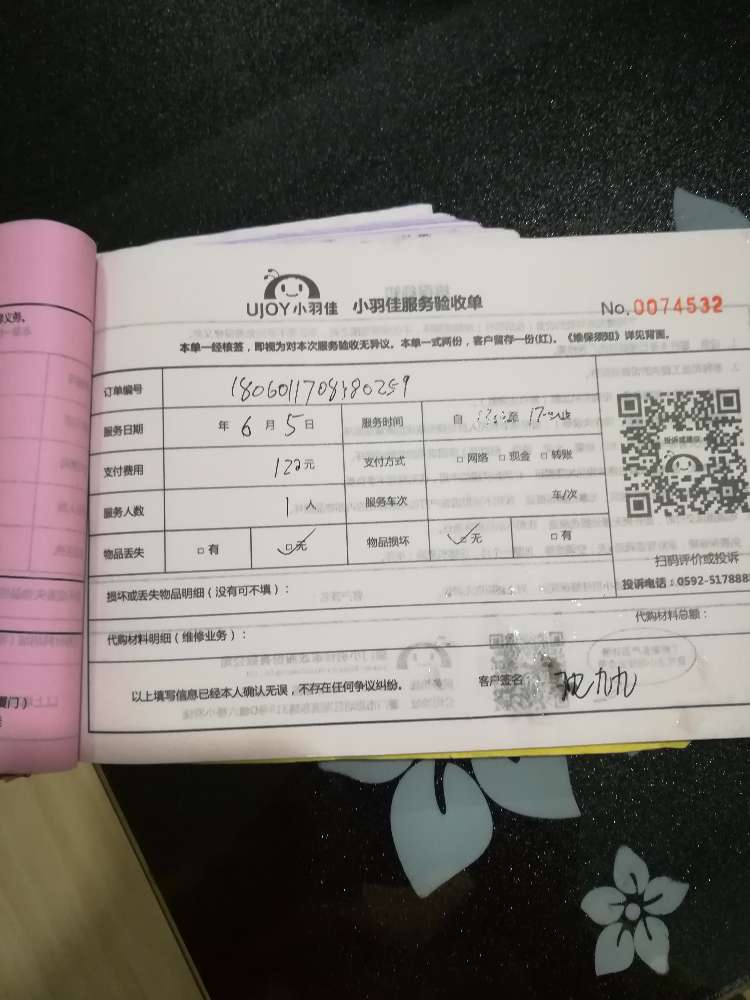 UJOY小羽佳 小羽佳服务验收单
No.0074532
本单一经核签，即视为对本次服务验收无异议。本单一式两份，客户留存一份(红)。《维保须知》详见背面。
订单编号
服务日期 年 6 月 5 日 服务时间 自 至 17
支付费用 122元 支付方式 □网络 □现金 □转账
服务人数 1 人 服务车次 年/次
物品丢失 □有 □无 物品损坏 □无 □有
投诉或建议
扫码评价或投诉
投诉电话：0592-517888
损坏或丢失物品明细（没有可不填）：
代购材料明细（维修业务）： 代购材料总额：
以上填写信息已经本人确认无误，不存在任何争议纠纷。 客户签名： 九九
义务。
厦门）